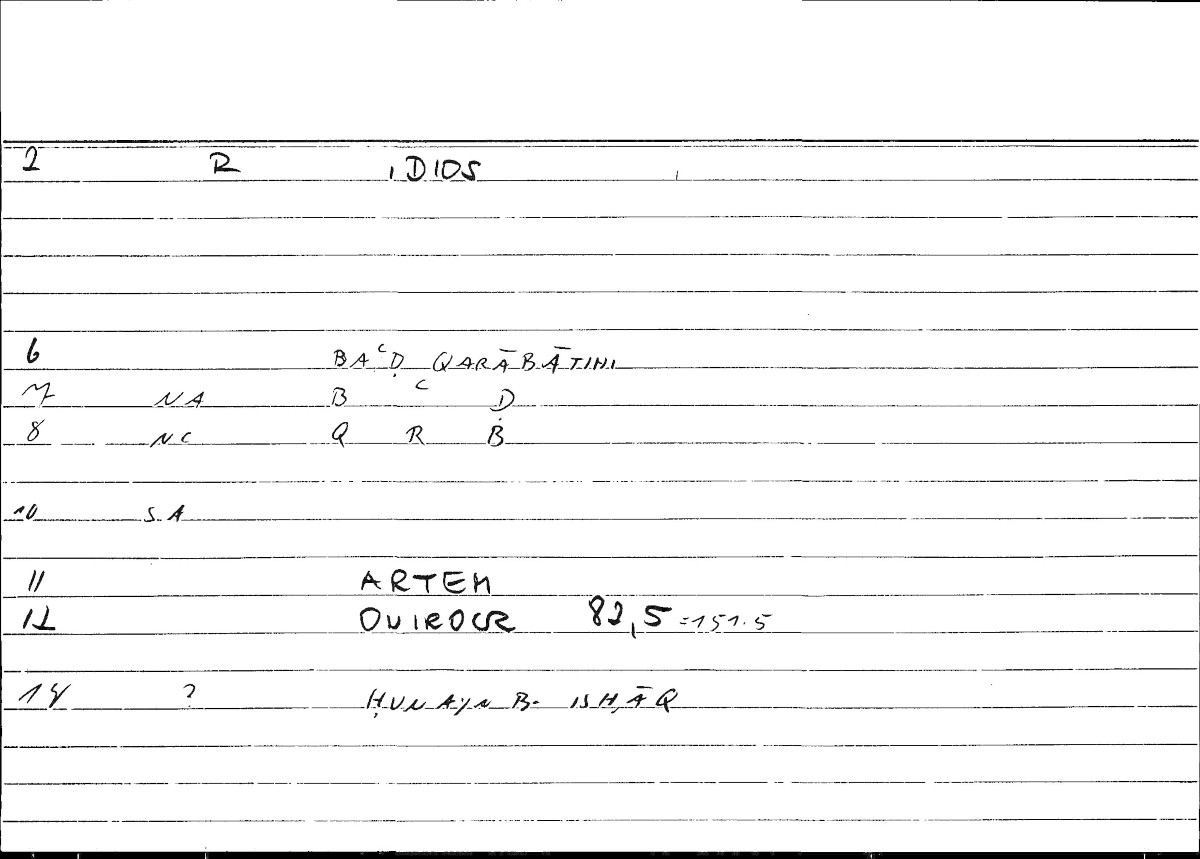 2 R iDIOS
6 BAʿḌ QARĀBĀTINI
7 NA B ʿ Ḍ
8 NC Q R B
10 S.A
11 ARTEM
12 OVIROCR 82,5 =151.5
14 ? ḤUNAYN B. ISḤĀQ